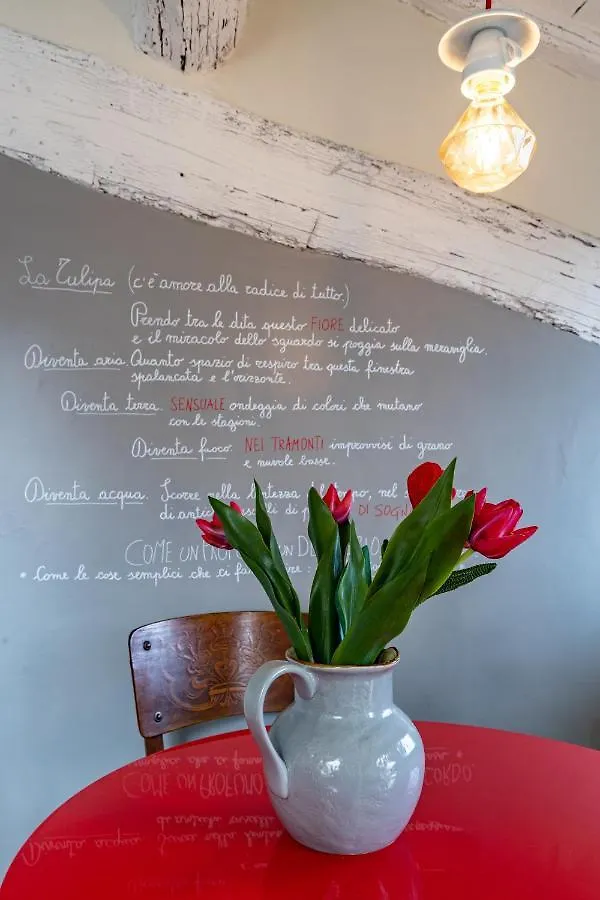 La Tulipa (c'è amore alla radice di tutto.)
Prendo tra le dita questo FIORE delicato
e il miracolo dello sguardo si poggia sulla meraviglia.
Diventa aria. Quanto spazio di respiro tra questa finestra
spalancata e l'orizzonte.
Diventa terra. SENSUALE ondeggia di colori che mutano
con le stagioni.
Diventa fuoco. NEI TRAMONTI improvvisi di grano
e nuvole basse.
Diventa acqua. Scorre nella lentezza nel
di DI
COME UN
* Come le cose semplici che ci